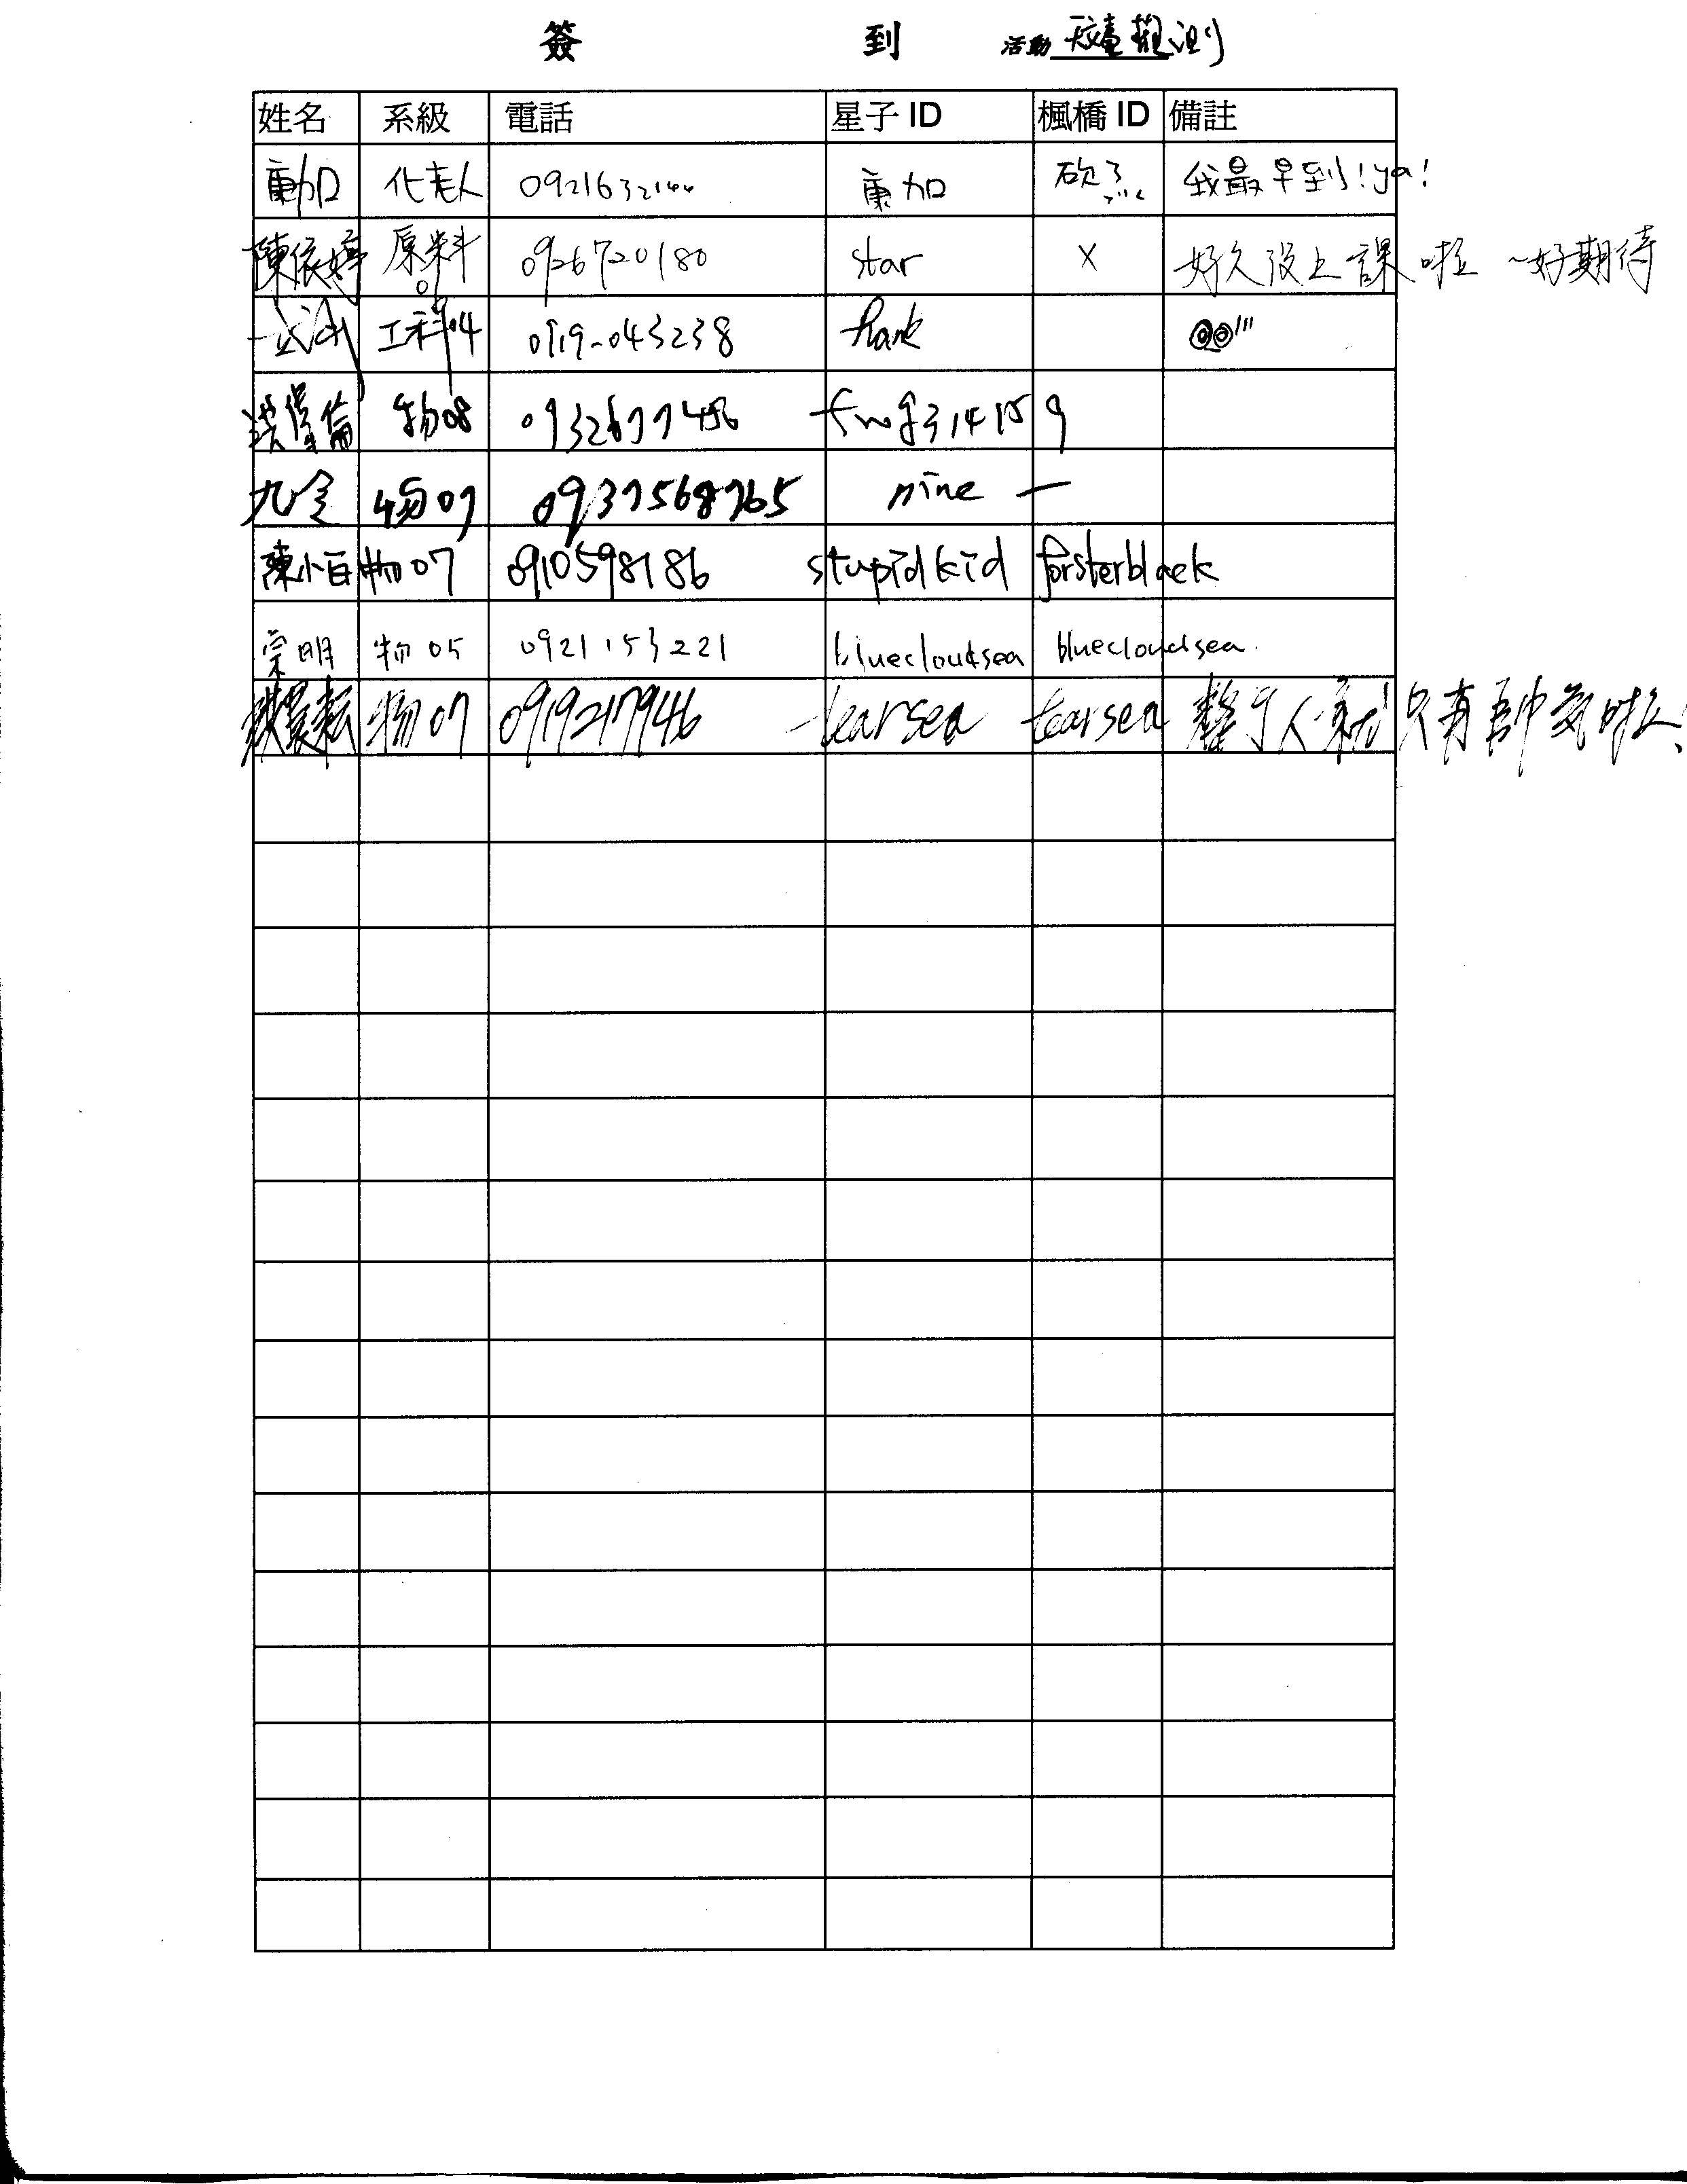 簽 到 活動 天文臺觀測
姓名 系級 電話 星子 ID 楓橋 ID 備註
化老人 0921632144 加 砍了... 我最早到!ya!
陳依婷 原科 09 0926720180 star X 好久沒上課啦 ~好期待
工科04 0919-043238 Hank @@'''
洪偉倫 物08 0932677456 fwg314159
九令 物07 0937568765 nine —
陳小百 物07 0910598186 stupidkid forsterblack
宗明 物05 0921153221 bluecloudsea bluecloudsea.
物07 0919217946 tearsea tearsea 整個人就只有帥氣啦